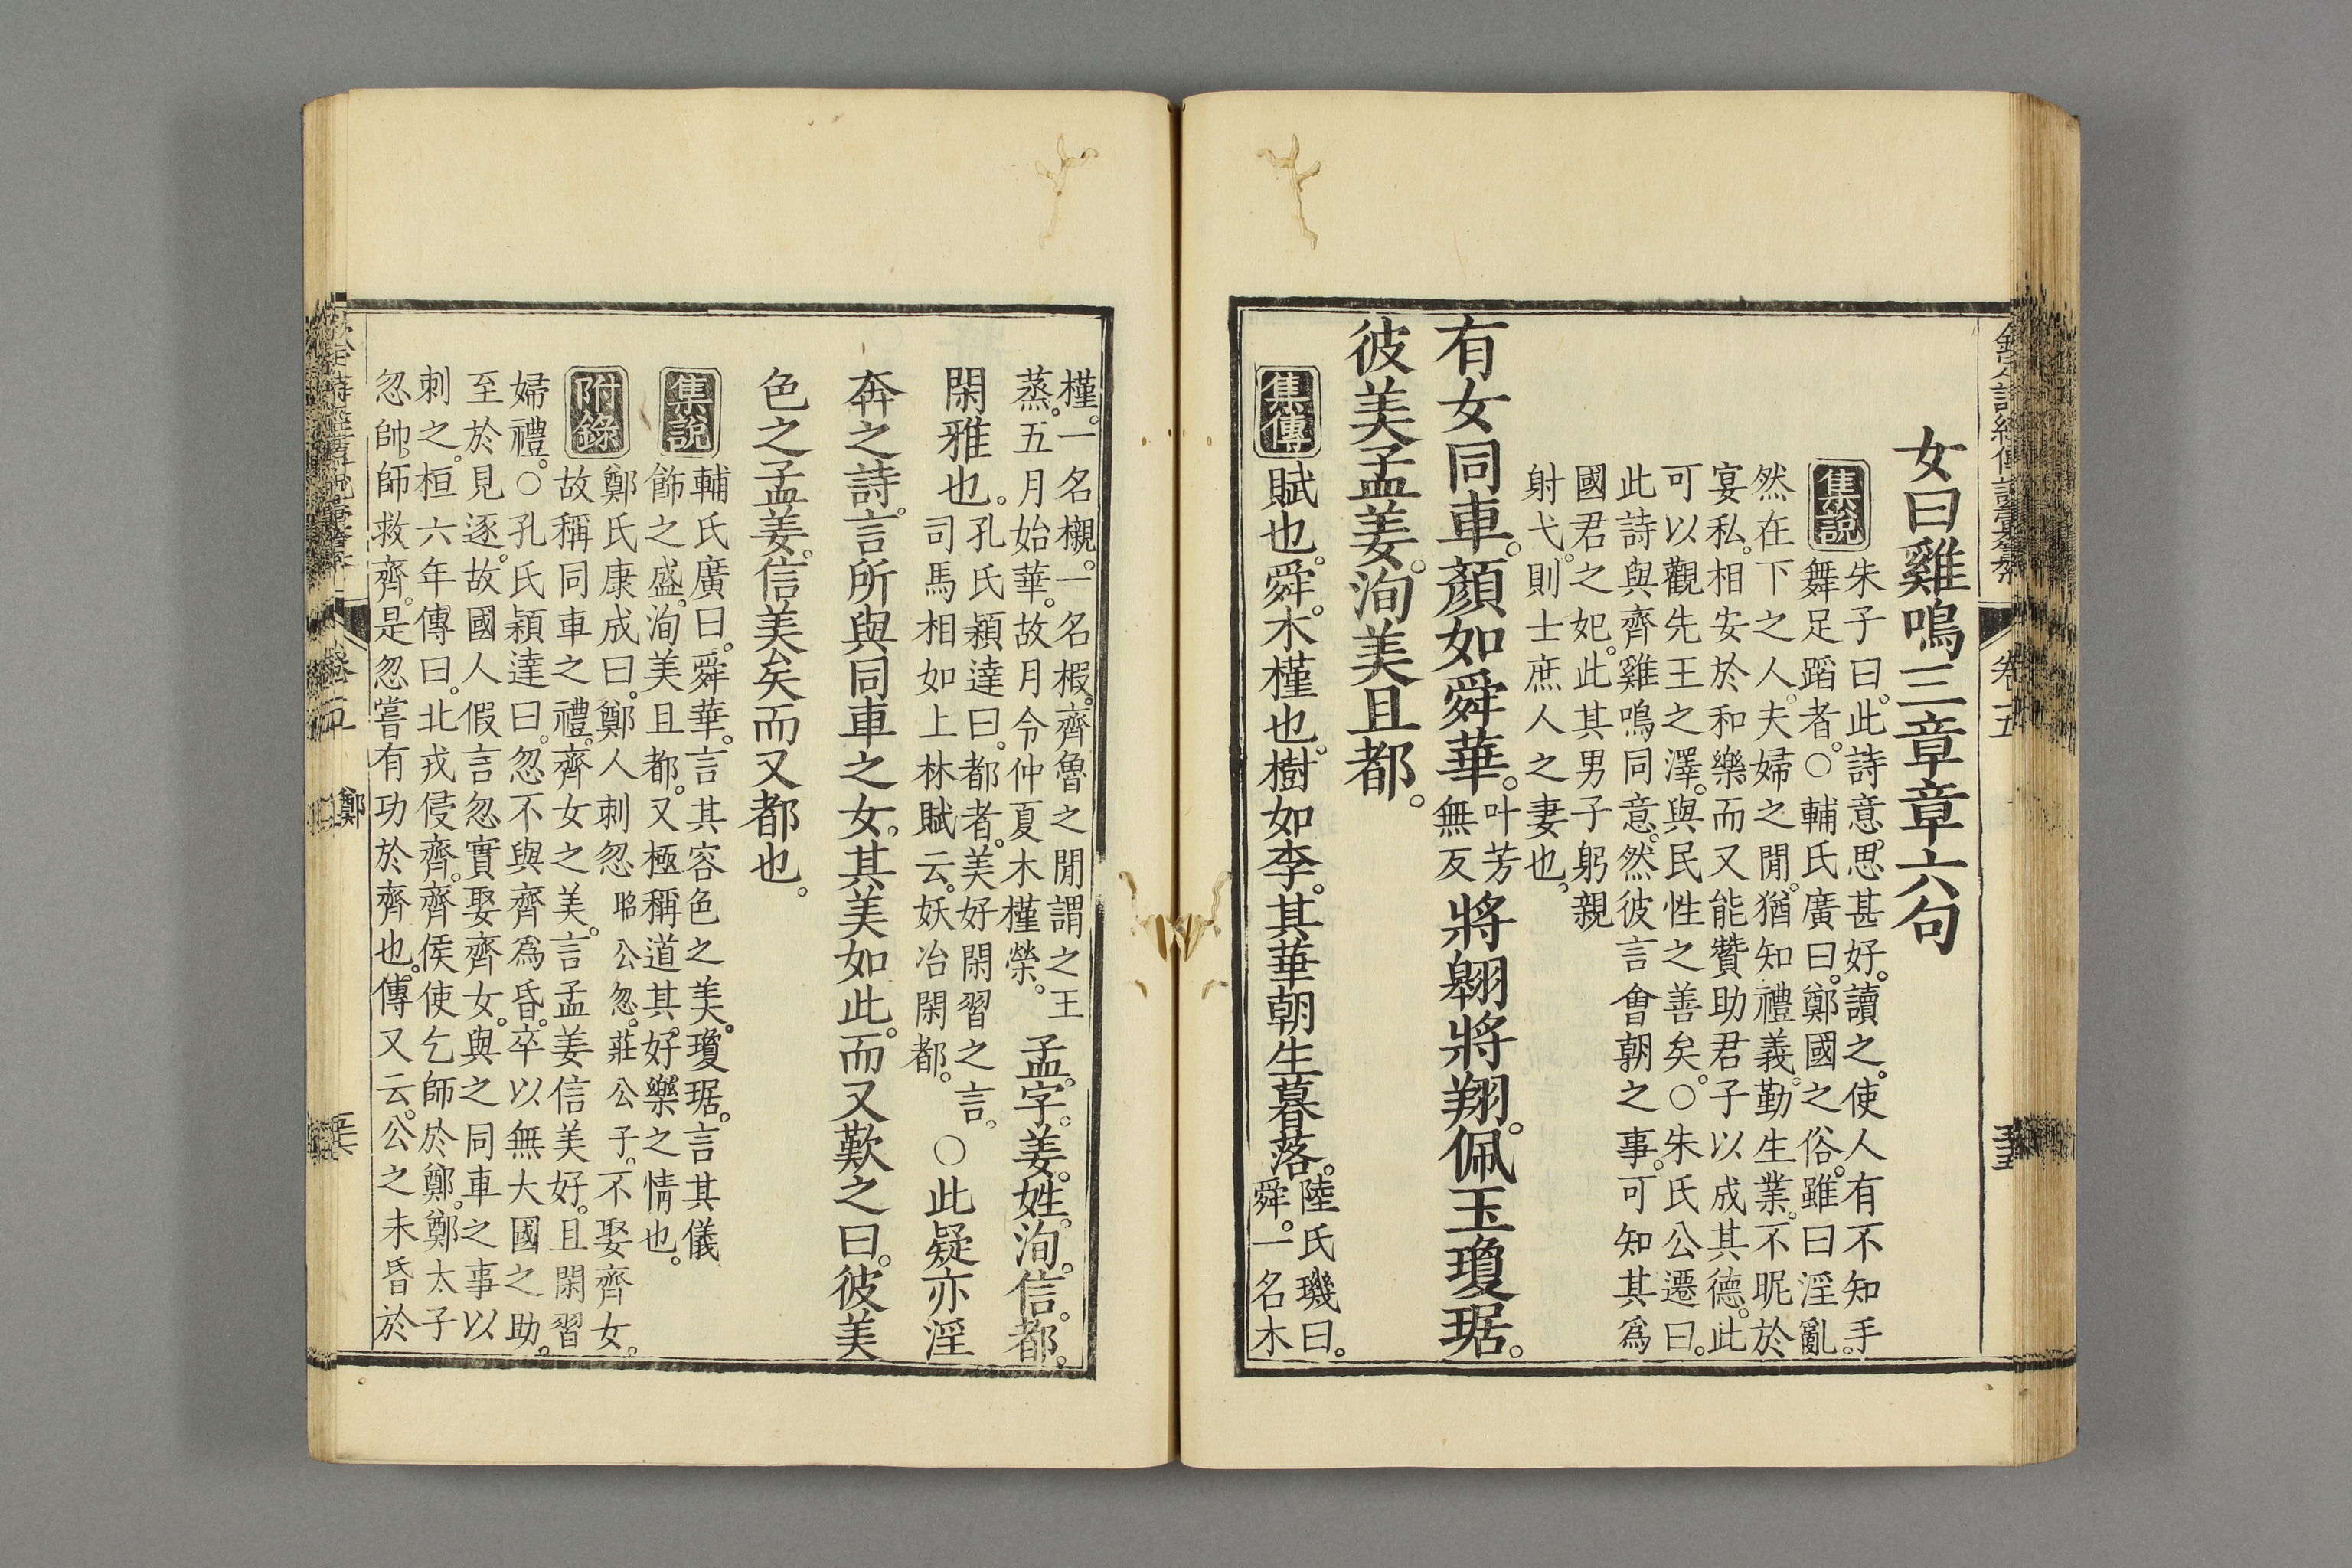 女曰雞鳴三章章六句
集說
朱子曰。此詩意思甚好。讀之。使人有不知手
舞足蹈者。○輔氏廣曰。鄭國之俗。雖曰淫亂。
然在下之人。夫婦之閒。猶知禮義。勤生業。不昵於
宴私。相安於和樂而又能贊助君子以成其德。此
可以觀先王之澤。與民性之善矣。○朱氏公遷曰。
此詩與齊雞鳴同意。然彼言會朝之事。可知其爲
國君之妃。此其男子躬親
射弋。則士庶人之妻也。
有女同車。顏如舜華。叶芳無反將翱將翔。佩玉瓊琚。
彼美孟姜。洵美且都。
集傳
賦也。舜。木槿也。樹如李。其華朝生暮落。陸氏璣曰。
舜。一名木
槿。一名櫬。一名椵。齊魯之閒謂之王
蒸。五月始華。故月令仲夏木槿榮。孟。字。姜。姓。洵。信。都。
閑雅也。孔氏穎達曰。都者。美好閑習之言。
司馬相如上林賦云。妖冶閑都。○此疑亦淫
奔之詩。言所與同車之女。其美如此。而又歎之曰。彼美
色之孟姜。信美矣而又都也。
集說
輔氏廣曰。舜華。言其容色之美。瓊琚。言其儀
飾之盛。洵美且都。又極稱道其好樂之情也。
附錄
鄭氏康成曰。鄭人刺忽昭公忽。莊公子。不娶齊女。
故稱同車之禮。齊女之美。言孟姜信美好。且閑習
婦禮。○孔氏穎達曰。忽不與齊爲昏。卒以無大國之助。
至於見逐。故國人假言忽實娶齊女。與之同車之事以
刺之。桓六年傳曰。北戎侵齊。齊侯使乞師於鄭。鄭太子
忽帥師救齊。是忽嘗有功於齊也。傳又云。公之未昏於
卷五
鄭